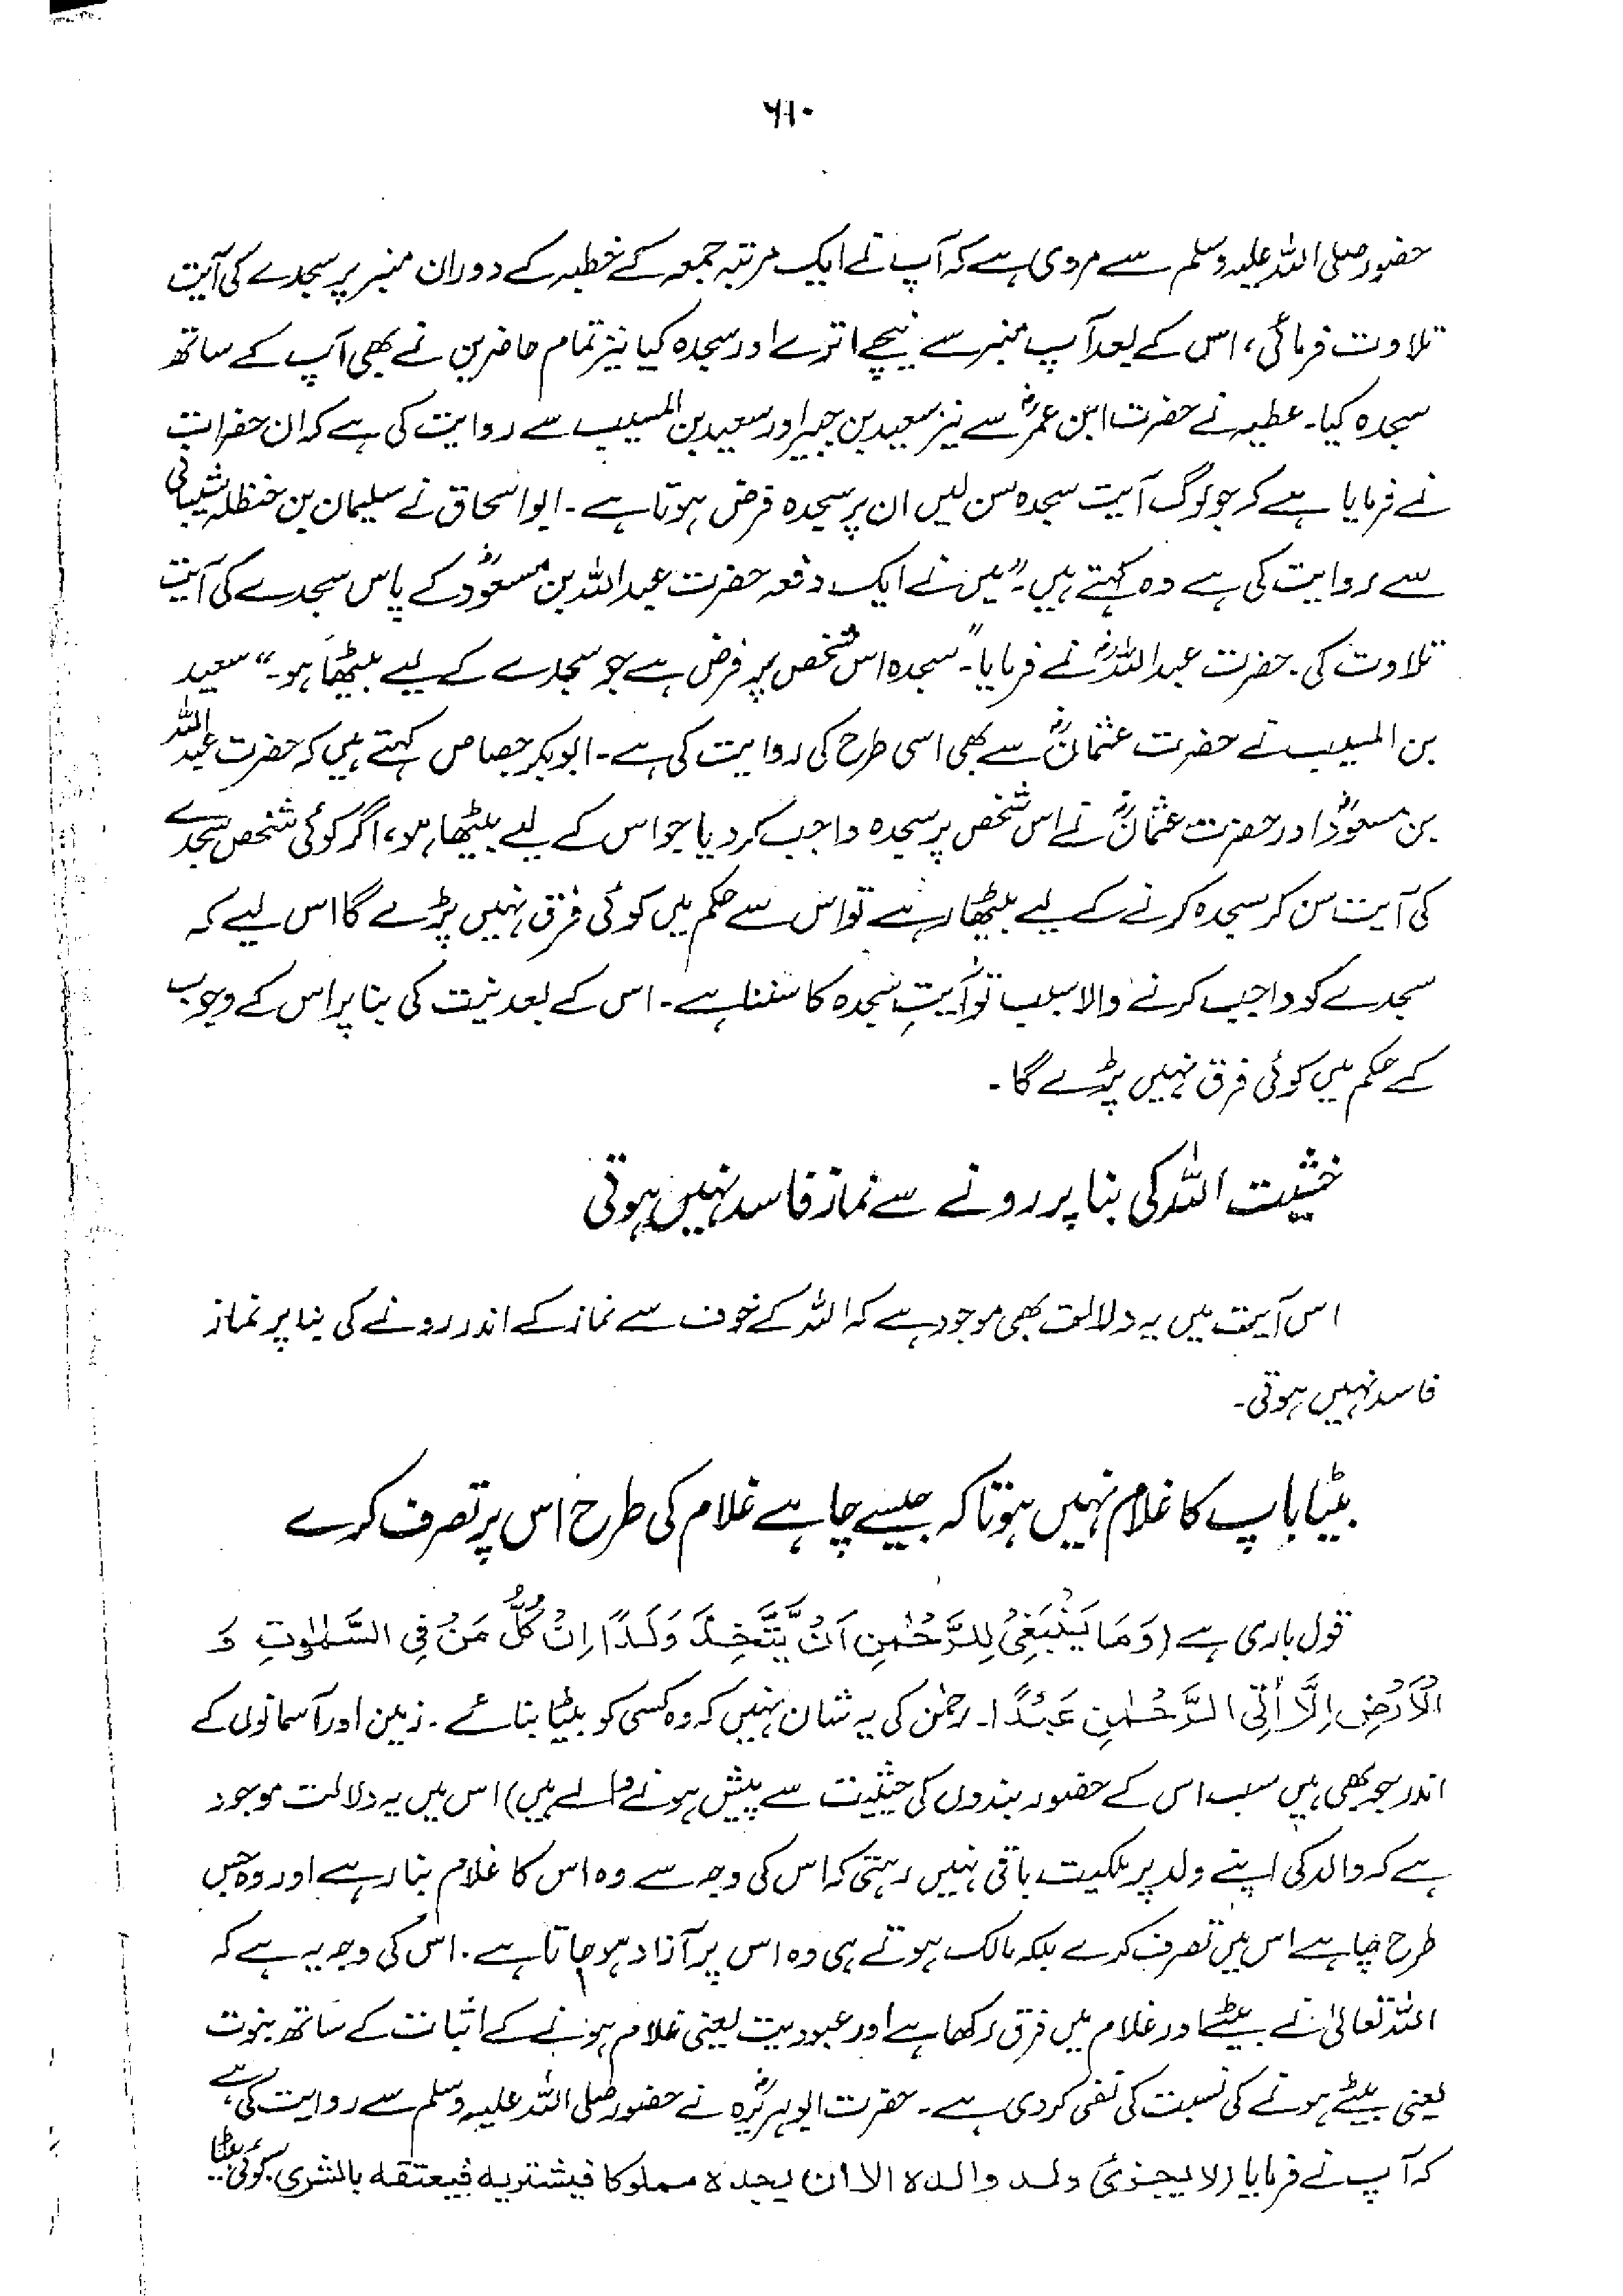 ۶۱۰
حضور صلی اللہ علیہ وسلم سے مروی ہے کہ آپ نے ایک مرتبہ جمعہ کے خطبہ کے دوران منبر پر سجدے کی آیت
تلاوت فرمائی، اس کے بعد آپ منبر سے نیچے اترے اور سجدہ کیا نیز تمام حاضرین نے بھی آپ کے ساتھ
سجدہ کیا۔ عطیہ نے حضرت ابن عمرؓ سے نیز سعید بن جبیر اور سعید بن المسیب سے روایت کی ہے کہ ان حضرات
نے فرمایا ہے کہ جو لوگ آیت سجدہ سن لیں ان پر سجدہ فرض ہوتا ہے۔ ابو اسحاق نے سلیمان بن حنظلہ شیبانی
سے روایت کی ہے وہ کہتے ہیں۔ "میں نے ایک دفعہ حضرت عبداللہ بن مسعودؓ کے پاس سجدے کی آیت
تلاوت کی۔ حضرت عبداللہؓ نے فرمایا۔ "سجدہ اس شخص پر فرض ہے جو سجدے کے لیے بیٹھا ہو۔" سعید
بن المسیب نے حضرت عثمانؓ سے بھی اسی طرح کی روایت کی ہے۔ ابوبکر جصاص کہتے ہیں کہ حضرت عبداللہ
بن مسعودؓ اور حضرت عثمانؓ نے اس شخص پر سجدہ واجب کر دیا جو اس کے لیے بیٹھا ہو، اگر کوئی شخص سجدے
کی آیت سن کر سجدہ کرنے کے لیے بیٹھا رہے تو اس سے حکم میں کوئی فرق نہیں پڑے گا اس لیے کہ
سجدے کو واجب کرنے والا سبب تو آیتِ سجدہ کا سننا ہے۔ اس کے بعد نیت کی بنا پر اس کے وجوب
کے حکم میں کوئی فرق نہیں پڑے گا۔
خشیت اللہ کی بنا پر رونے سے نماز فاسد نہیں ہوتی
اس آیت میں یہ دلالت بھی موجود ہے کہ اللہ کے خوف سے نماز کے اندر رونے کی بنا پر نماز
فاسد نہیں ہوتی۔
بیٹا باپ کا غلام نہیں ہوتا کہ جیسے چاہے غلام کی طرح اس پر تصرف کرے
قول باری ہے (وَمَا يَنْبَغِيْ لِلرَّحْمٰنِ اَنْ يَّتَّخِذَ وَلَدًا اِنْ كُلُّ مَنْ فِي السَّمٰوٰتِ وَ
الْاَرْضِ اِلَّا اٰتِي الرَّحْمٰنِ عَبْدًا۔ رحمٰن کی یہ شان نہیں کہ وہ کسی کو بیٹا بنائے۔ زمین اور آسمانوں کے
اندر جو بھی ہیں سب اس کے حضور بندوں کی حیثیت سے پیش ہونے والے ہیں) اس میں یہ دلالت موجود
ہے کہ والد کی اپنے ولد پر ملکیت باقی نہیں رہتی کہ اس کی وجہ سے وہ اس کا غلام بنا رہے اور وہ جس
طرح چاہے اس میں تصرف کرے بلکہ مالک ہوتے ہی وہ اس پر آزاد ہو جاتا ہے۔ اس کی وجہ یہ ہے کہ
اللہ تعالیٰ نے بیٹے اور غلام میں فرق رکھا ہے اور عبودیت یعنی غلام ہونے کے اثبات کے ساتھ بنوت
یعنی بیٹے ہونے کی نسبت کی نفی کر دی ہے۔ حضرت ابوہریرہؓ نے حضور صلی اللہ علیہ وسلم سے روایت کی ہے،
کہ آپ نے فرمایا (لا يجزئ ولد والده الا ان يجده مملوكا فيشتريه فيعتقه بالشرى۔ کوئی بیٹا